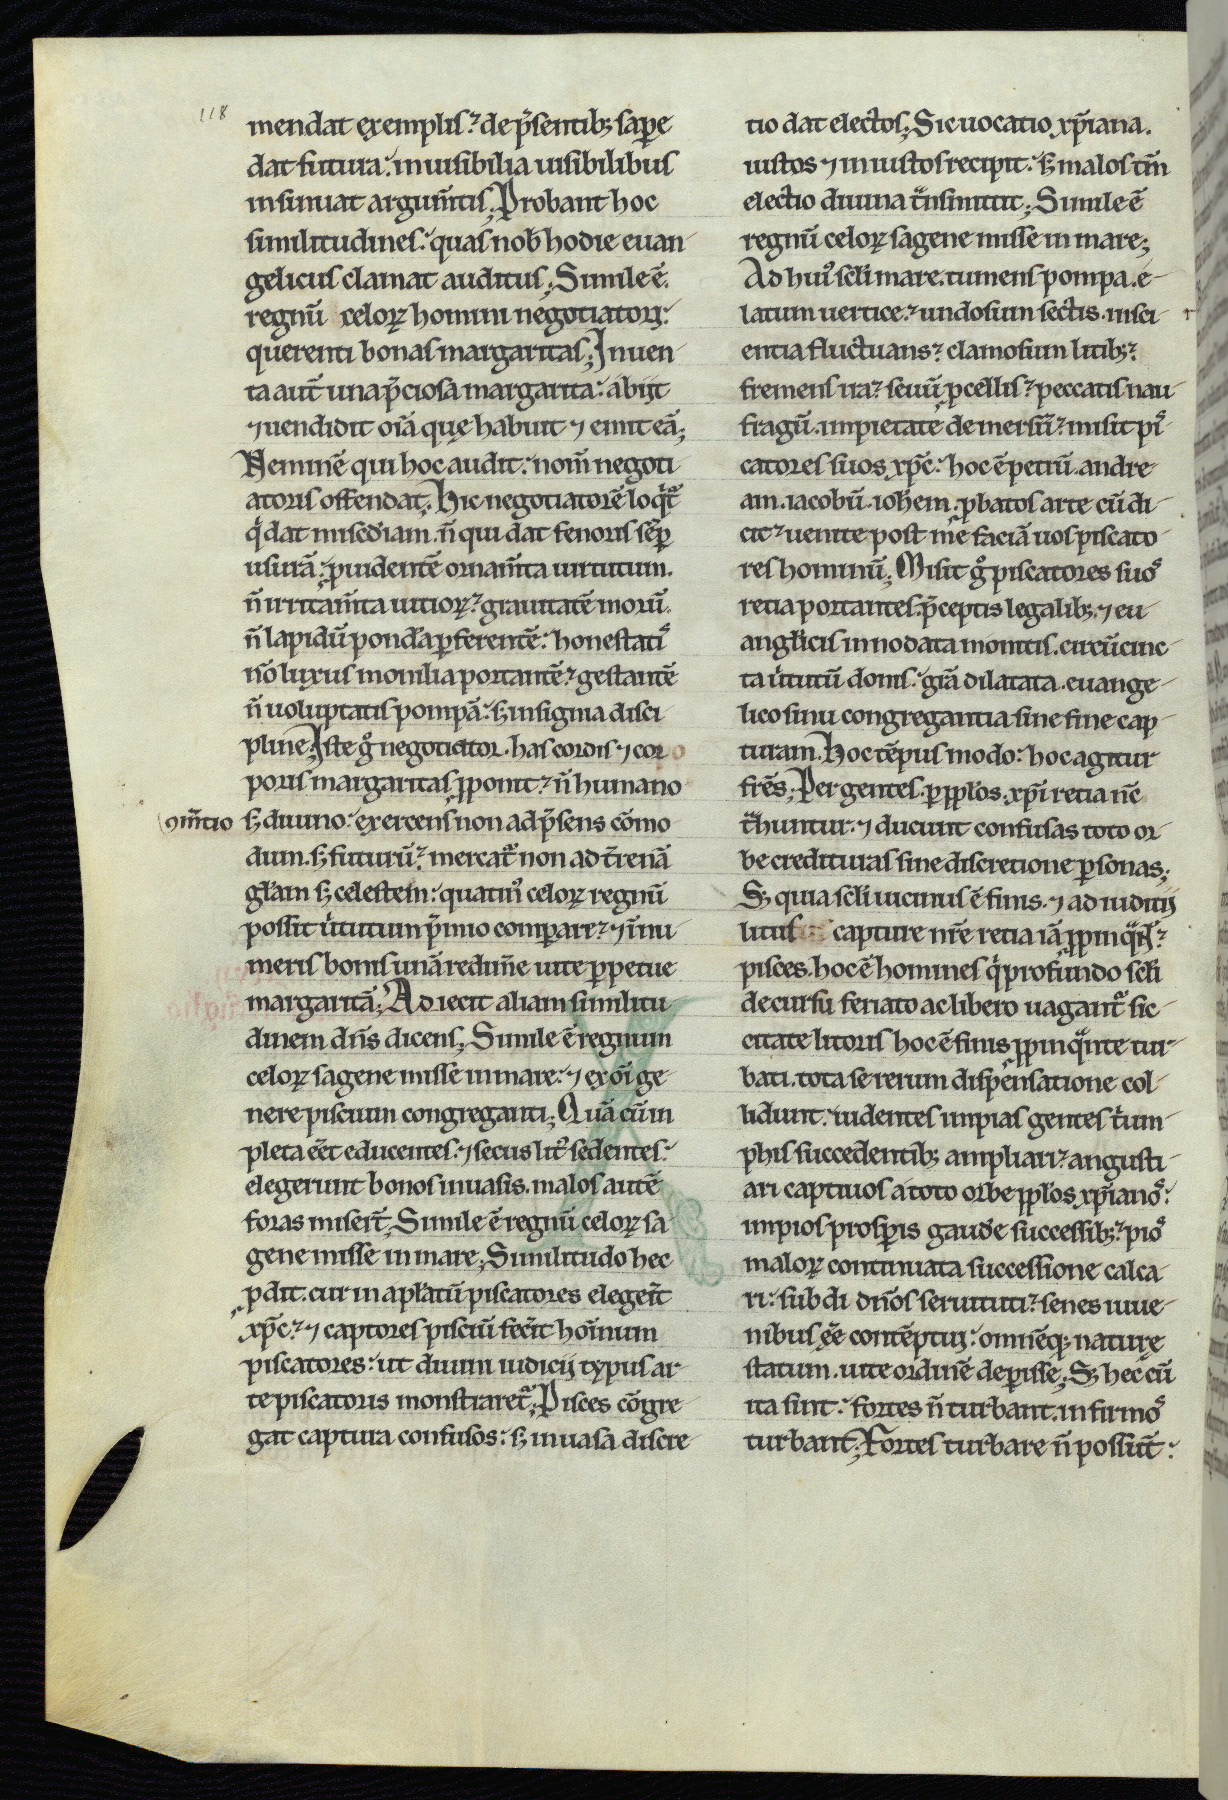 118
mendat exemplis. de p̄sentib; sape
dat futura. inuisibilia uisibilibus
insinuat argum̄tis; Probant hoc
similitudines. quas nob̄ hodie euan
gelicus clamat auditus; Simile ē
regnū celoꝝ homini negotiatori.
querenti bonas margaritas; Inuen
ta aut̄ una p̄ciosa margarita. abijt
⁊ uendidit oīa quę habuit ⁊ emit eā;
Neminē qui hoc audit. nom̄ negoti
atoris offendat; Hic negotiatorē loq̇t᷑
q̇ dat miscd̄iam. n̄ qui dat fenoris sēp
usurā. ꝓuidentē ornam̄ta uirtutum.
n̄ irritam̄ta uitioꝝ. grauitatē morū.
n̄ lapidū pondera ꝑferentē. honestatiˢ
nōluxus monilia portantē. gestantē
n̄ uoluptatis pompā. s; insignia disci
pline; Iste g° negotiator. has cordis ⁊ cor
poris margaritas ꝓponit. n̄ humano
ꝯm̄tio s; diuino. exercens non ad p̄sens cōmo
dum. s; futurū. mercat᷑ non ad t̄renā
glām s; celestem. quatin᷒ celoꝝ regnū
possit ūtutum p̄mio comparare. ⁊ īnu
meris bonis unā redim̄e uite ꝑpetue
margaritā; Adiecit aliam similitu
dinem dn̄s dicens; Simile ē regnum
celoꝝ sagene misse in mare. ⁊ ex oī ge
nere piscium congreganti; Quā cū im
pleta eēt educentes. ⁊ secus lit᷒ sedentes.
elegerunt bonos in uasis. malos autē
foras miser̄t; Simile ē regnū celoꝝ sa
gene misse in mare; Similitudo hec
ꝓdit. cur in aplātū piscatores elegerīt
xp̄c. ⁊ captores pisciū fecīt hoīnum
piscatores. ut diuini iudicij typus ar
te piscatoris monstraret᷑; Pisces cōgre
gat captura confusos. s; in uasa discre
tio dat electos; Sic uocatio xp̄iana.
iustos ⁊ iniustos recipit. s; malos tm̄
electio diuina t̄nsmittit; Simile ē
regnū celoꝝ sagene misse in mare;
Ad hui᷒ scl̄i mare. tumens pompa. e
latum uertice. undosum sectis. insci
entia fluctuans. clamosum litib;.
fremens ira. seuū ꝓcellis. peccatis nau
fragū. impietate demersū. misit piˢ
catores suos xp̄c. hoc ē petrū. andre
am. iacobū. ioh̄em. ꝓbatos arte cū di
cit. uenite post me faciā uos piscato
res hominū; Misit g° piscatores suoˢ
retia portantes. p̄ceptis legalib; ⁊ eu
angl̄icis innodata monitis. circūcinc
ta ūtutū donis. gr̄a dilatata. euange
lico sinu congregantia sine fine cap
turam. Hoc tēpus modo. hoc agitur
fr̄es; Per gentes. ꝑ ppl̄os. xp̄i retia nc̄
t̄huntur. ⁊ ducunt confusas toto or
be credituras sine discretione ꝑsonas;
S; quia scl̄i uicinus ē finis. ⁊ ad iuditij
litus capture nr̄e retia iā ꝓpinq̄nt.
pisces. hoc ē homines q̇ profundo scl̄i
de cursu feriato ac libero uagant᷑ sic
citate litoris hoc ē finis ꝓpinq̄nte tur
bati. tota se rerum dispensatione col
lidunt. uidentes impias gentes t̄um
phis succedentib; ampliari. angusti
ari captiuos a toto orbe ppl̄os xp̄ianoˢ.
impios prosꝑis gaudere successib;. pioˢ
maloꝝ continuata successione calca
ri. subdi dn̄os seruituti. senes iuue
nibus ēē contēptui. omnēq; naturę
statum. uite ordinē deꝑisse; S; hec cū
ita sint. fortes n̄ turbant. infirmoˢ
turbant; Fortes turbare n̄ possunt.